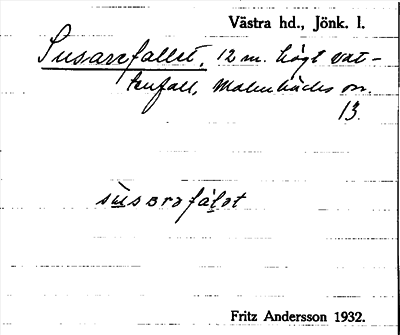 Västra hd., Jönk. l.
Susarefallet, 12 m. högt vat-
tenfall, Malmbäcks sn.
13.
sùsarafálet
Fritz Andersson 1932.